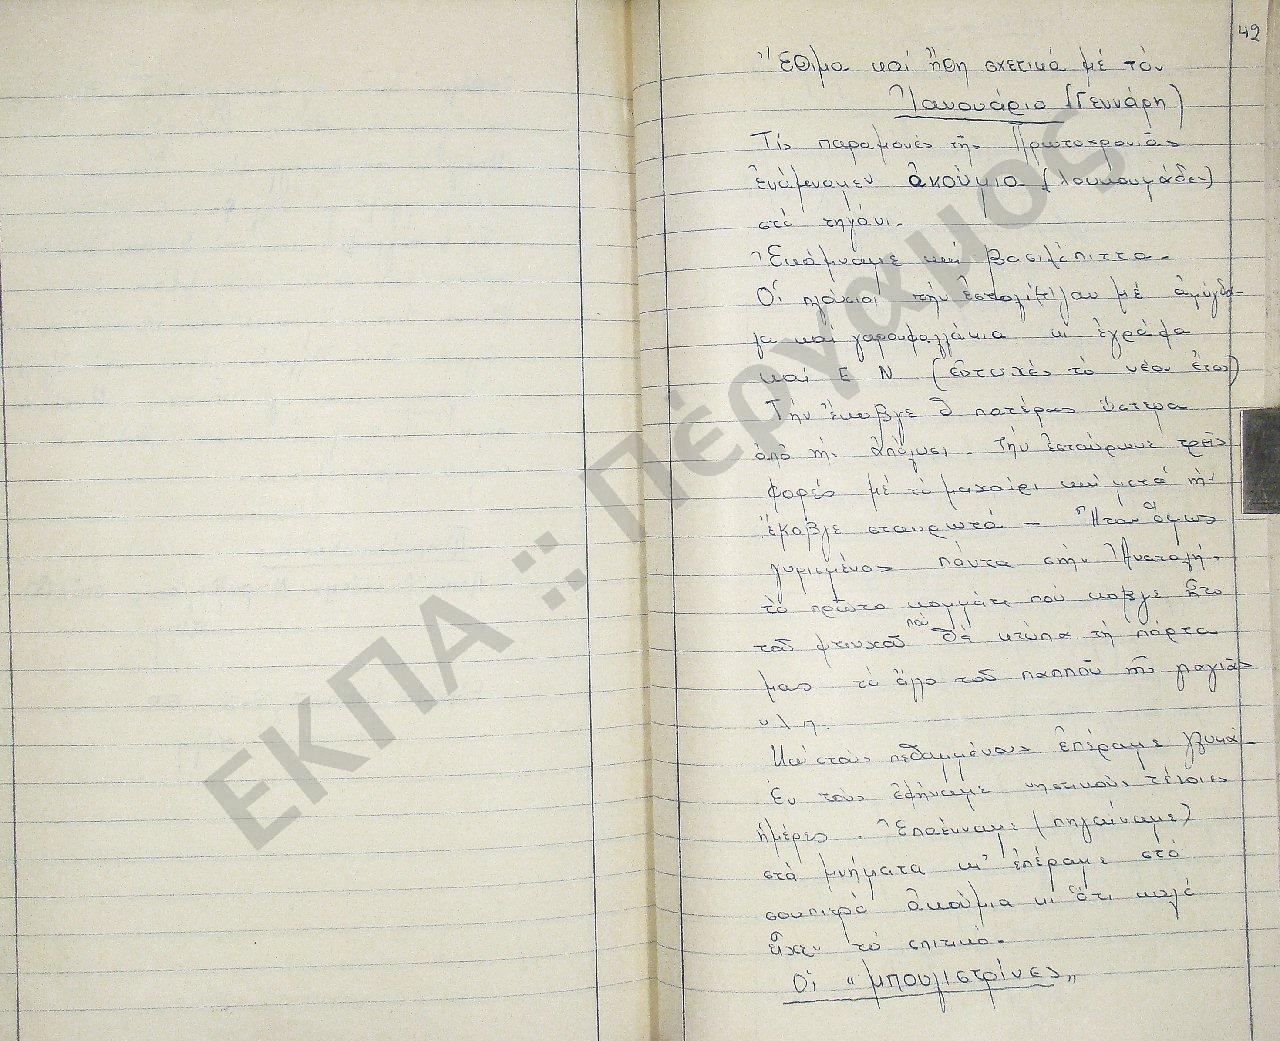 42
Ἔθιμα καί ἤθη σχετικά μέ τόν
Ἰανουάριο (Γεννάρη)
Τίς παραμονές τῆς Πρωτοχρονιᾶς
ἐκάμναμεν ἀκούμια (λουκουμάδες)
στό τηγάνι.
Ἐκάμναμε καί βασιλόπιττα.
Οἱ πλούσιοι τήν ἐστολίζαν μέ ἀμύγδα-
λα καί γαρουφαλλάκια κι ἐγράφα
καί Ε Ν (εὐτυχές τό νέον ἔτος)
Τήν ἔκοβγε ὁ πατέρας ὕστερα
ἀπό τήν ἀπόλυσι. Τήν ἐσταύρωνε τρεῖς
φορές μέ τό μαχαίρι καί μετά τήν
ἔκοβγε σταυρωτά - Ἦταν ὅμως
γυρισμένος πάντα στήν Ἀνατολή.
τό πρῶτο κομμάτι πού κοβγε ἦτο
τοῦ φτωχοῦ πού θά κτύπα τή πόρτα
μας τό ἄλο τοῦ παπποῦ τῆς γιαγιᾶς
κ λ π.
Καί στούς πεθαμμένους ἐπέραμε γλυκά
Ἐν τούς ἐφήναμε νηστικούς τέτοιες
ἡμέρες. Ἐπαένναμε (πηγαίναμε)
στά μνήματα κι' ἐπέραμε στό
σουπιέρα ἀκούμια κι ὅτι καλό
εἶχεν τό σπιτικό.
Οἱ "μπουλιστρίνες"
ΕΚΠΑ :: Πέργαμος